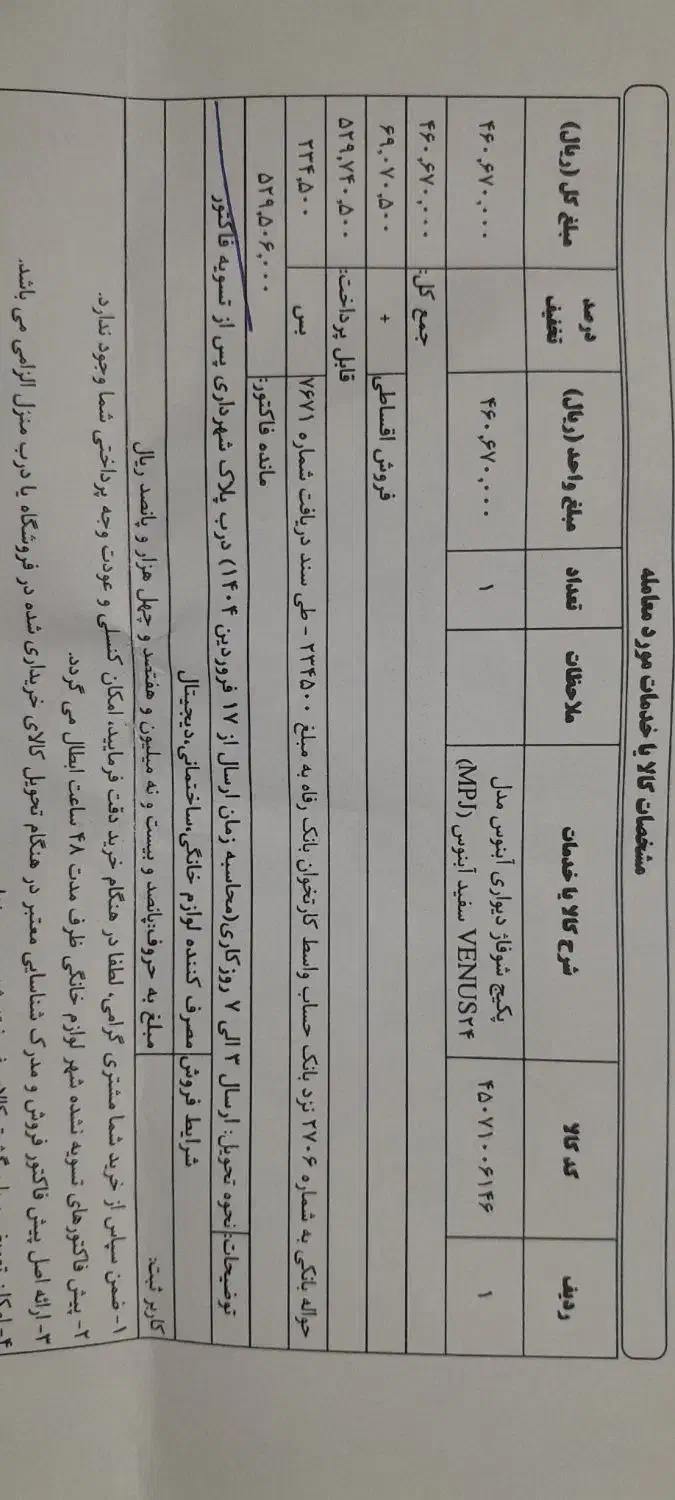 مشخصات کالا یا خدمات مورد معامله
ردیف کد کالا شرح کالا یا خدمات ملاحظات تعداد مبلغ واحد (ریال) درصد تخفیف مبلغ کل (ریال)
۱ ۴۵۰۷۱۰۰۶۱۴۶ پکیج شوفاژ دیواری آبنوس مدل ۱ ۴۶۰,۶۷۰,۰۰۰ ۴۶۰,۶۷۰,۰۰۰
VENUS۲۴ سفید آبنوس (MPJ)
جمع کل: ۴۶۰,۶۷۰,۰۰۰
فروش اقساطی + ۶۹,۰۷۰,۵۰۰
قابل پرداخت: ۵۲۹,۷۴۰,۵۰۰
حواله بانکی به شماره ۲۷۰۶ نزد بانک حساب واسط کارتخوان بانک رفاه به مبلغ ۲۳۴۵۰۰ - طی سند دریافت شماره ۷۶۷۱ بس ۲۳۴,۵۰۰
مانده فاکتور: ۵۲۹,۵۰۶,۰۰۰
توضیحات: نحوه تحویل: ارسال ۳ الی ۷ روز کاری(محاسبه زمان ارسال از ۱۷ فروردین ۱۴۰۴) درب پلاک شهرداری پس از تسویه فاکتور
شرایط فروش مصرف کننده لوازم خانگی،ساختمانی،دیجیتال
کاربر ثبت: مبلغ به حروف:پانصد و بیست و نه میلیون و هفتصد و چهل هزار و پانصد ریال
۱- ضمن سپاس از خرید شما مشتری گرامی، لطفا در هنگام خرید دقت فرمایید، امکان کنسلی و عودت وجه پرداختی شما وجود ندارد.
۲- پیش فاکتورهای تسویه نشده شهر لوازم خانگی ظرف مدت ۴۸ ساعت ابطال می گردد.
۳- ارائه اصل پیش فاکتور فروش و مدرک شناسایی معتبر در هنگام تحویل کالای خریداری شده در فروشگاه یا درب منزل الزامی می باشد.
۴- امکان